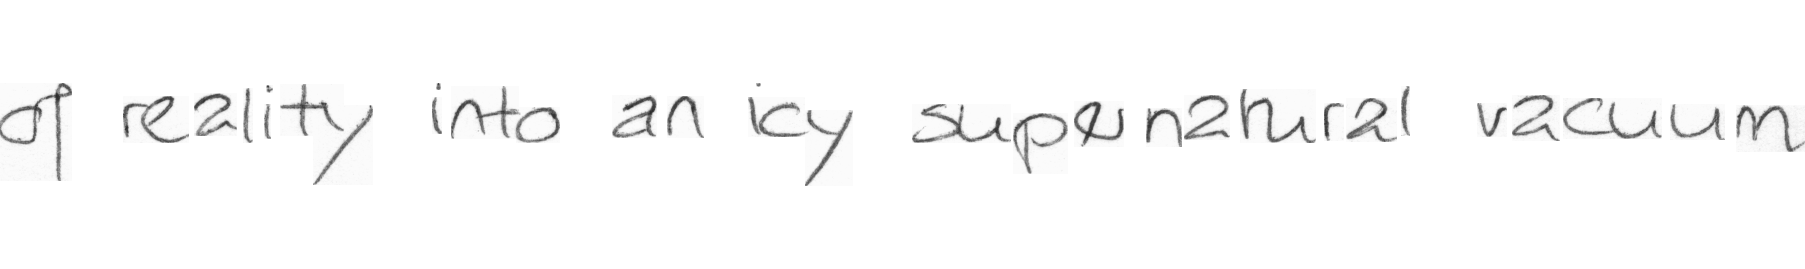 of reality into an icy supernatural vacuum